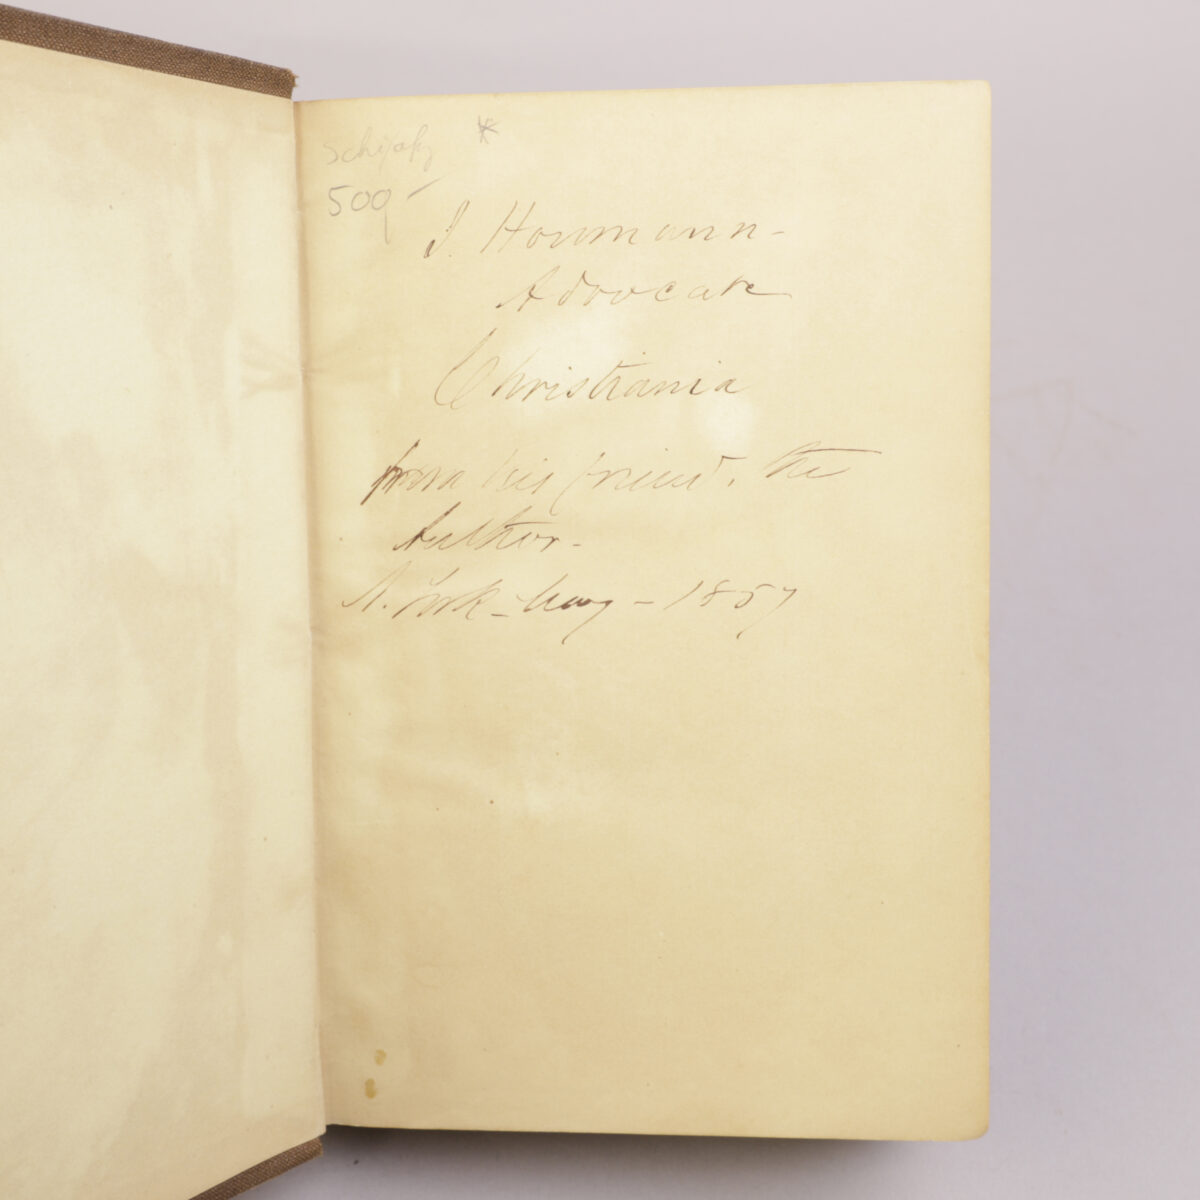 *
500
J. Houmann-
Advocate
Christiania
from his friend, the
Author-
N. York - May - 1857